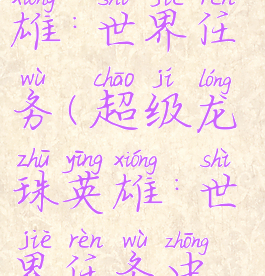 xióng shì jiè rèn
雄:世界任
wù chāo jí lóng
务(超级龙
zhū yīng xióng shì
珠英雄:世
jiè rèn wù zhōng
界任务中